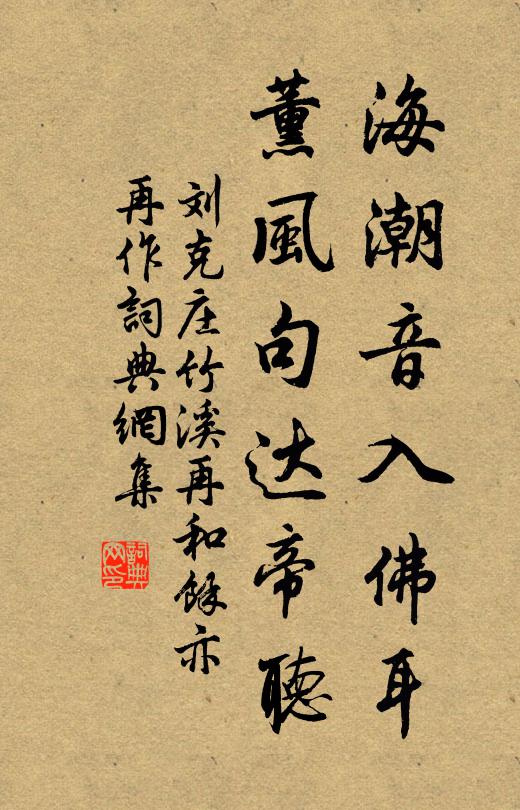 海潮音入佛耳
薰風句达帝聽
刘克庄竹溪再和餘亦
再作詞典網集
詞典网印